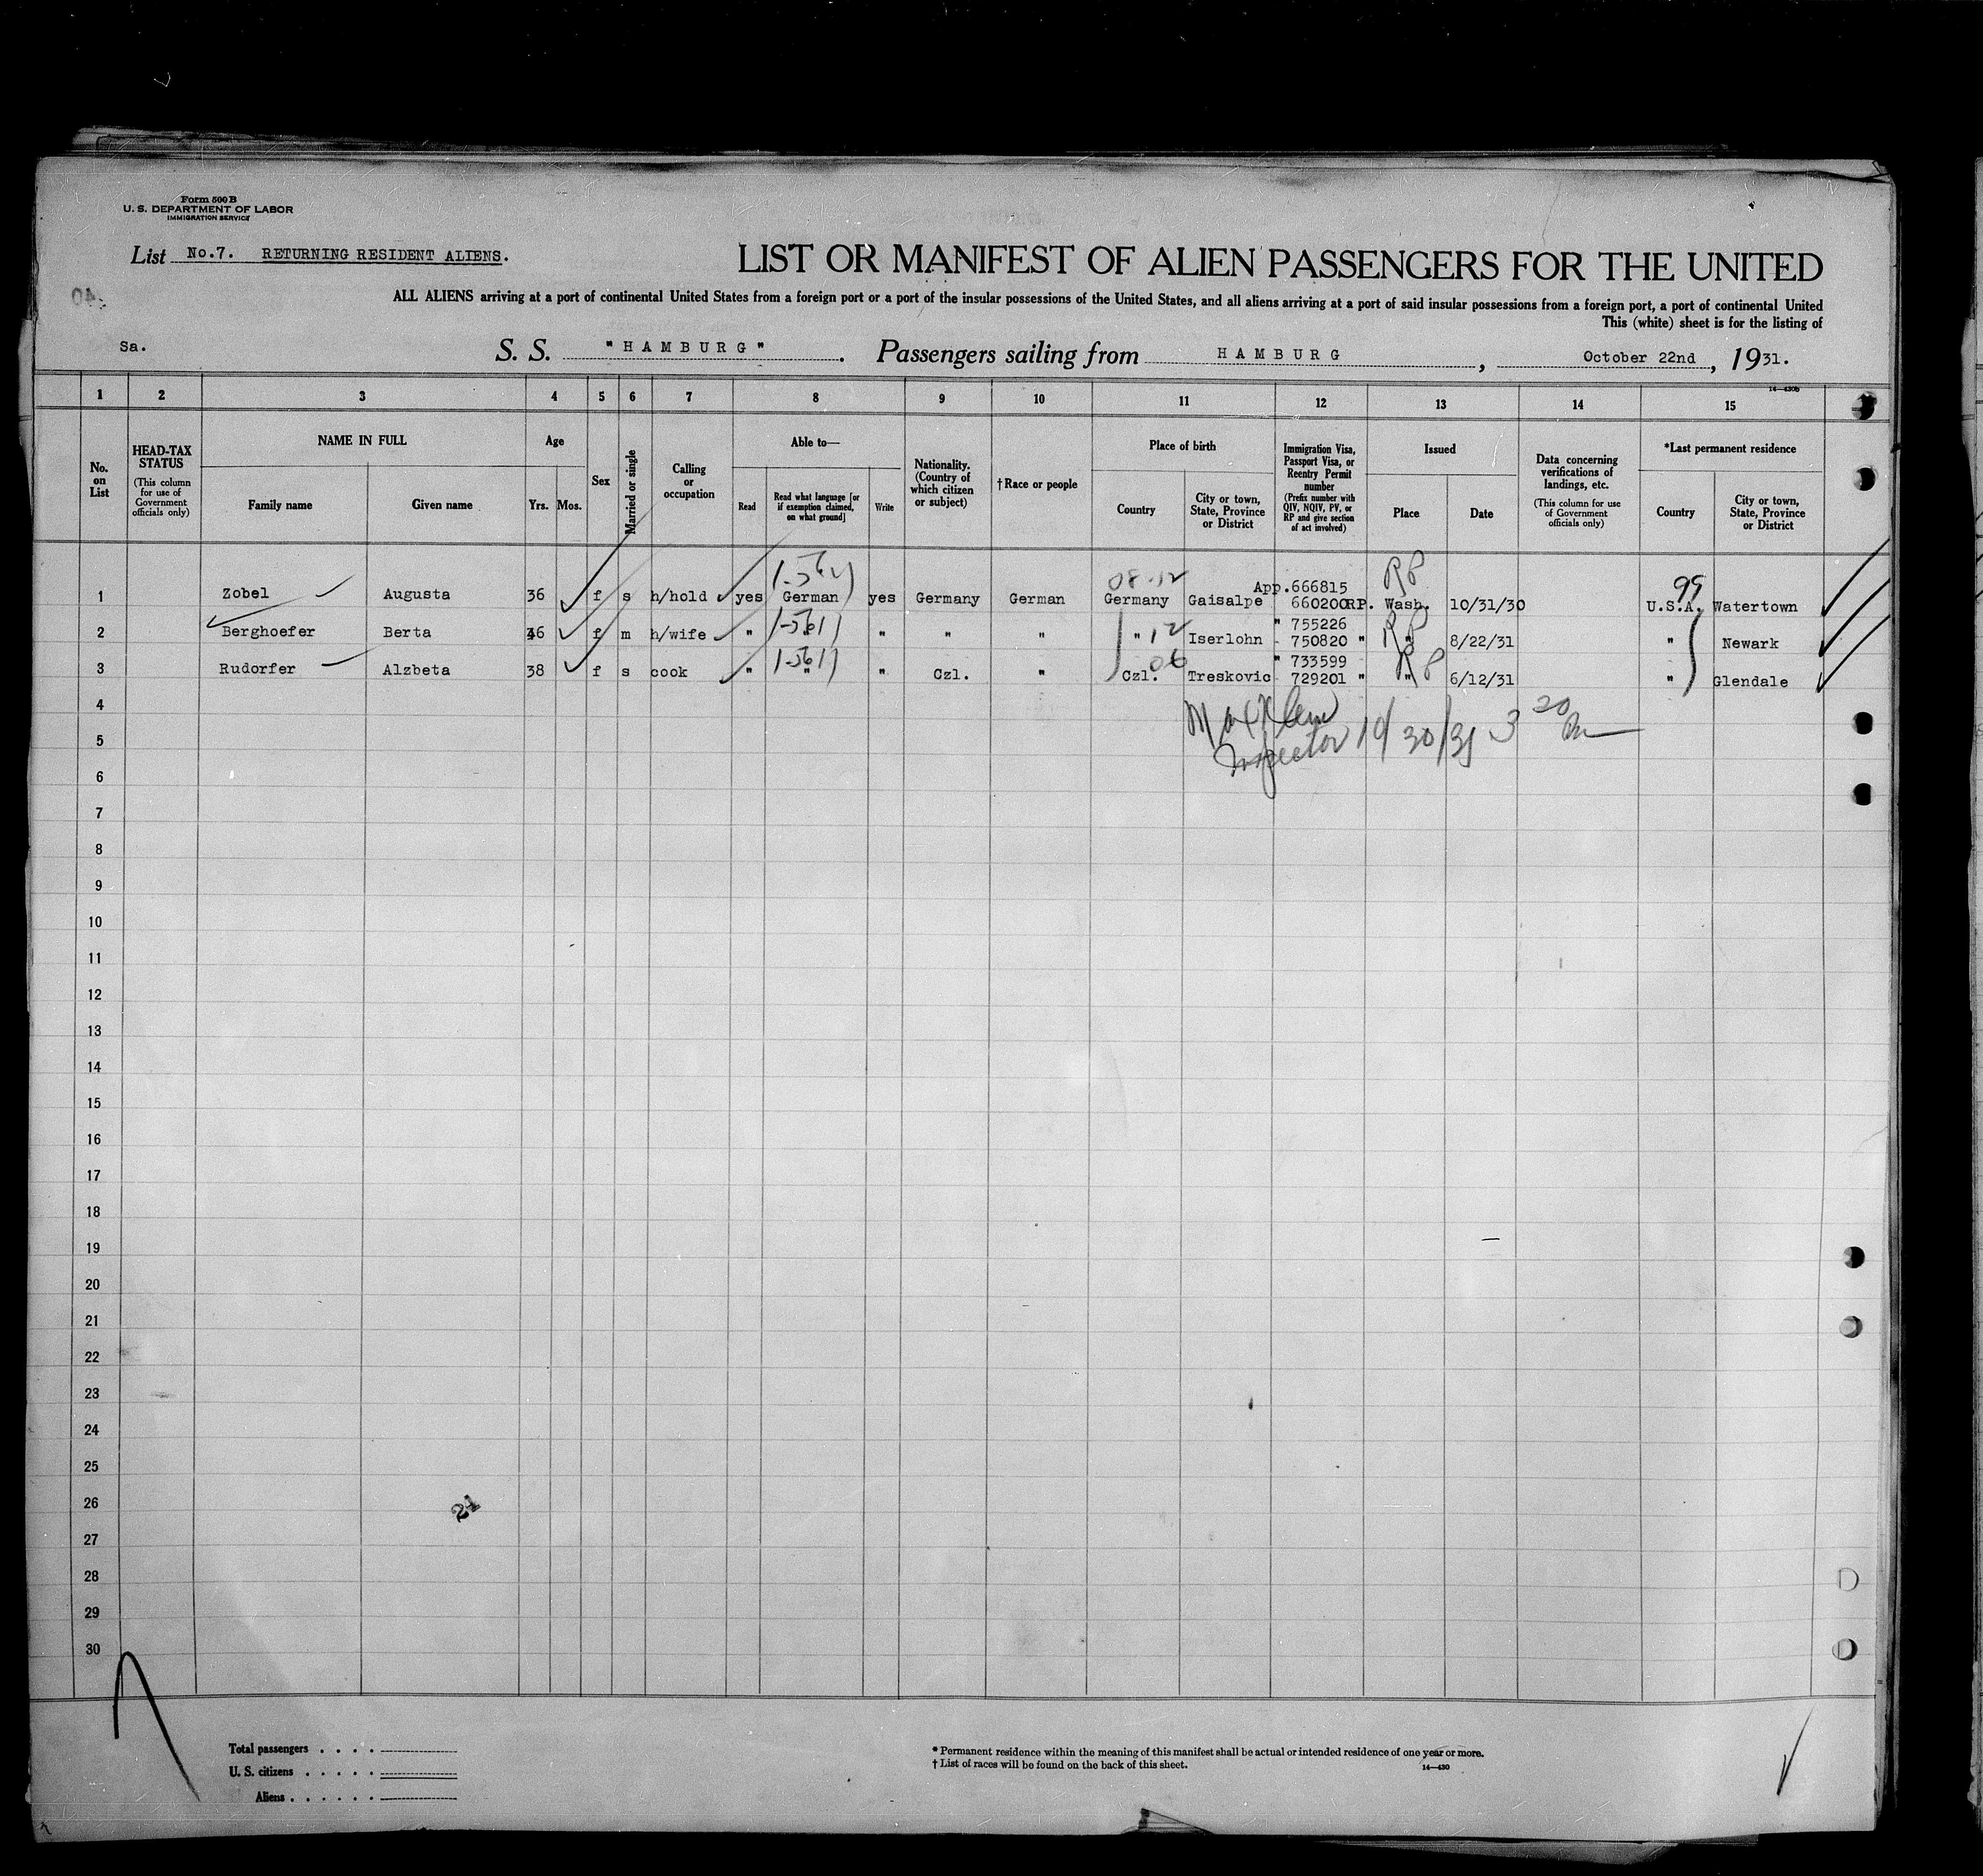 Form 500 B
U. S. DEPARTMENT OF LABOR
IMMIGRATION SERVICE
List No.7. RETURNING RESIDENT ALIENS.
LIST OR MANIFEST OF ALIEN PASSENGERS FOR THE UNITED
ALL ALIENS arriving at a port of continental United States from a foreign port or a port of the insular possessions of the United States, and all aliens arriving at a port of said insular possessions from a foreign port, a port of continental United
This (white) sheet is for the listing of
Sa. S. S. "HAMBURG". Passengers sailing from HAMBURG, October 22nd, 1931.
14—430b
1 2 3 4 5 6 7 8 9 10 11 12 13 14 15
No. on List
HEAD-TAX STATUS (This column for use of Government officials only)
NAME IN FULL
Family name Given name
Age
Yrs. Mos.
Sex
Married or single
Calling or occupation
Able to—
Read Read what language [or if exemption claimed, on what ground] Write
Nationality. (Country of which citizen or subject)
†Race or people
Place of birth
Country City or town, State, Province or District
Immigration Visa, Passport Visa, or Reentry Permit number (Prefix number with QIV, NQIV, PV, or RP and give section of act involved)
Issued
Place Date
Data concerning verifications of landings, etc. (This column for use of Government officials only)
*Last permanent residence
Country City or town, State, Province or District
08-12 App.666815 RP 99
1 Zobel Augusta 36 f s h/hold yes German yes Germany German Germany Gaisalpe 660200RP. Wash. 10/31/30 U.S.A. Watertown
" 755226 RP
2 Berghoefer Berta 46 f m h/wife " " " " " " 12 Iserlohn 750820 " " 8/22/31 " Newark
06 " 733599 RP
3 Rudorfer Alzbeta 38 f s cook " " " Czl. " Czl. Treskovic 729201 " " 6/12/31 " Glendale
4
5 Inspector 10/30/31 3 20
6
7
8
9
10
11
12
13
14
15
16
17
18
19
20
21
22
23
24
25
26
27
28
29
30
Total passengers . . . .
U. S. citizens . . . . .
Aliens . . . . . .
* Permanent residence within the meaning of this manifest shall be actual or intended residence of one year or more.
† List of races will be found on the back of this sheet.
14—430